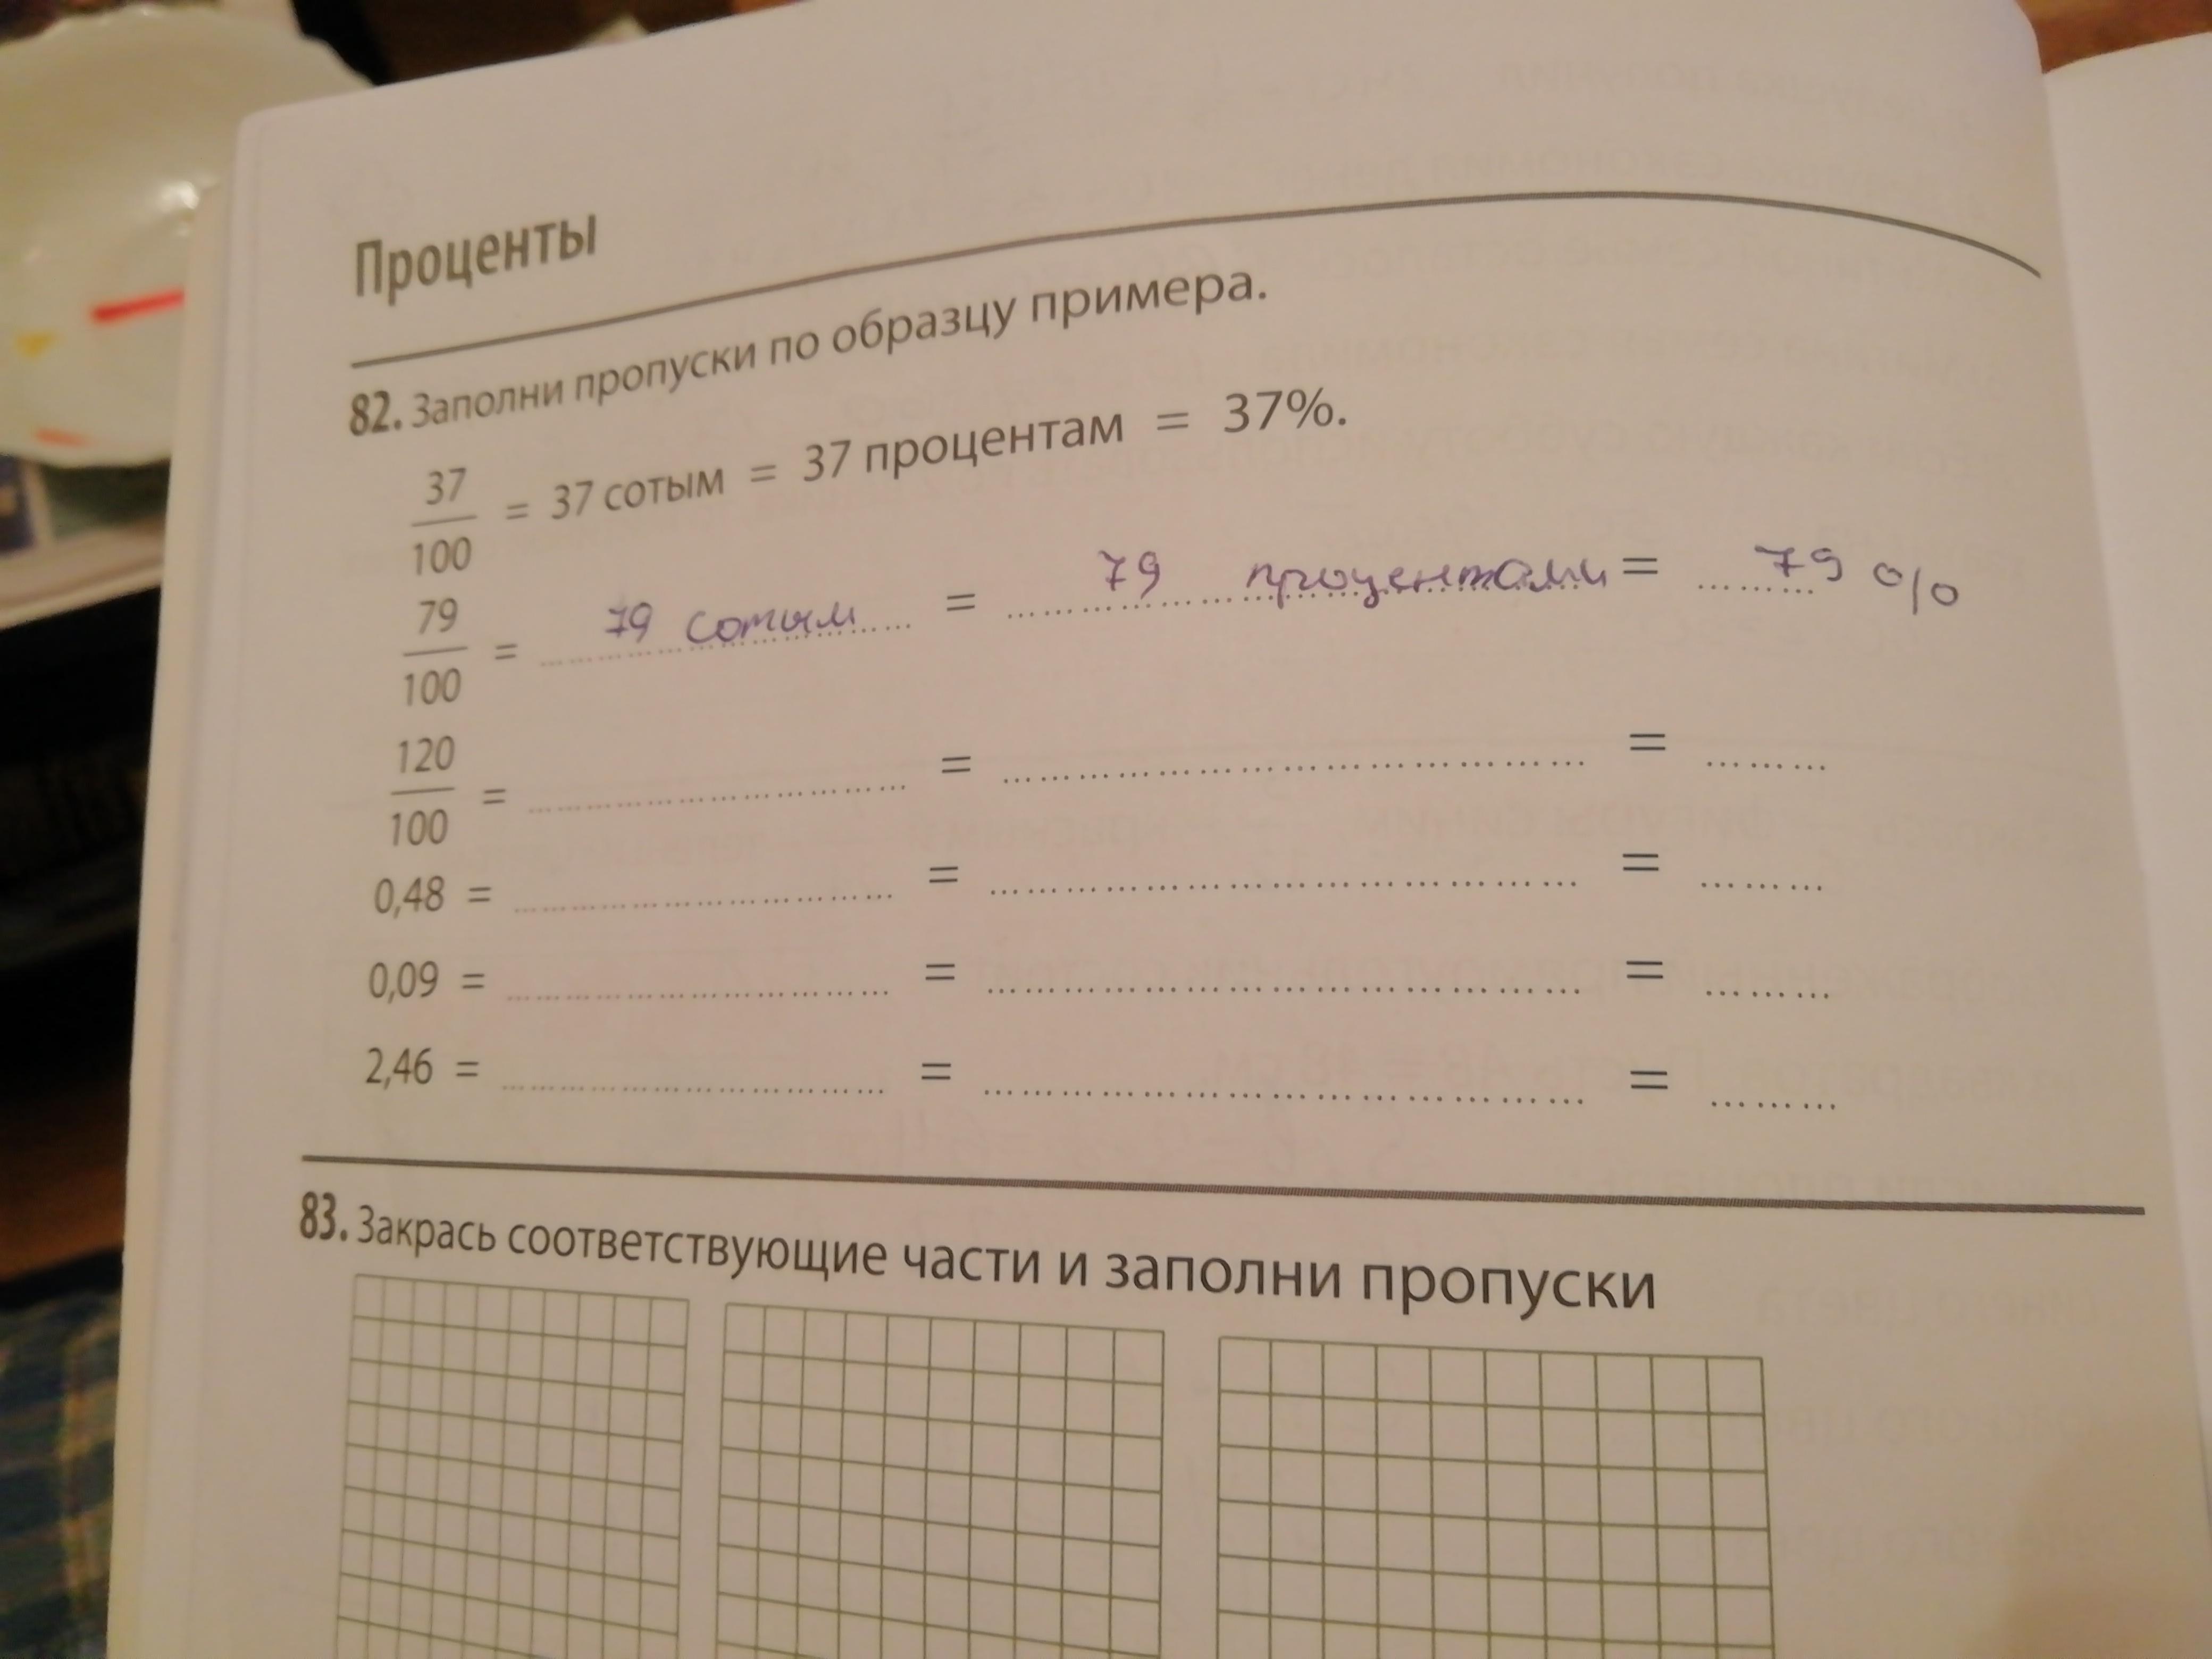 Проценты
82. Заполни пропуски по образцу примера.
37/100 = 37 сотым = 37 процентам = 37%.
79/100 = 79 сотым = 79 процентами = 79 %
120/100 = ........ = ........ = ........
0,48 = ........ = ........ = ........
0,09 = ........ = ........ = ........
2,46 = ........ = ........ = ........
83. Закрась соответствующие части и заполни пропуски